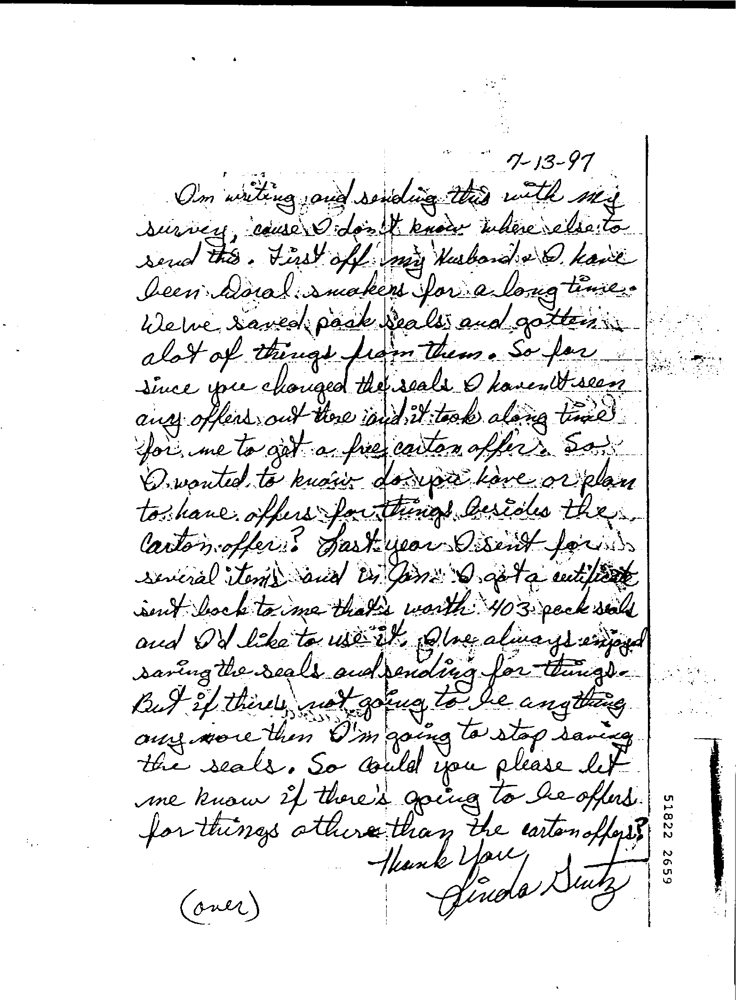 7-13-97
I'm writing and sending this with my
survey, cause I don't know where else to
send ths. First off my Husband & I have
been Doral smokers for a long time.
We've saved pack seals and gotten
alot of things from them. So far
since you changed the seals I haven't seen
any offers out there and it took along time
for me to get a free carton offer. So
I wanted to know do you have or plan
to have offers for things besides the
Carton offer? Last year I sent for
several items and in Jan. I got a certificate
sent back to me that's worth 403 pack seals
and I'd like to use it. I've always enjoyed
saving the seals and sending for things.
But if there's not going to be anything
any more then I'm going to stop saving
the seals. So could you please let
me know if there's going to be offers
for things other than the carton offers?
Thank You,
Linda
(over)
51822 2659